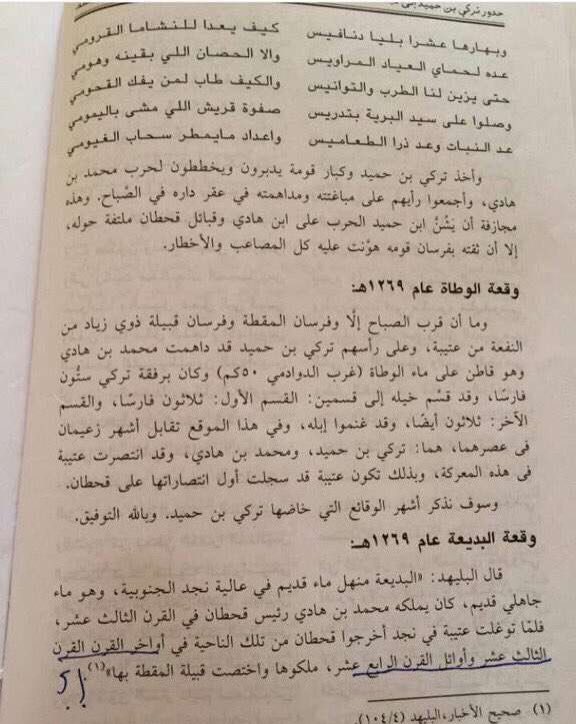 حدور تركي بن حميد
وبهارها عشرا بليا دنافيس كيف يعدا للنشاما القرومي
عده لحماي العياد المراويس والا الحصان اللي بقينه وهومي
حتى يزين لنا الطرب والتوانيس والكيف طاب لمن يفك القحومي
وصلوا على سيد البرية بتدريس صفوة قريش اللي مشى باليمومي
عد النبات وعد ذرا الطعاميس واعداد مايمطر سحاب الغيومي
وأخذ تركي بن حميد وكبار قومة يدبرون ويخططون لحرب محمد بن
هادي، وأجمعوا رأيهم على مباغتته ومداهمته في عقر داره في الصَّباح. وهذه
مجازفة أن يَشُنَّ ابن حميد الحرب على ابن هادي وقبائل قحطان ملتفة حوله،
إلا أن ثقته بفرسان قومه هوَّنت عليه كل المصاعب والأخطار.
وقعة الوطاة عام ١٢٦٩هـ:
وما أن قرب الصباح إلَّا وفرسان المقطة وفرسان قبيلة ذوي زياد من
النفعة من عتيبة، وعلى رأسهم تركي بن حميد قد داهمت محمد بن هادي
وهو قاطن على ماء الوطاة (غرب الدوادمي ٥٠كم) وكان برفقة تركي ستُّون
فارسًا، وقد قسَّم خيله إلى قسمين: القسم الأول: ثلاثون فارسًا، والقسم
الآخر: ثلاثون أيضًا، وقد غنموا إبله، وفي هذا الموقع تقابل أشهر زعيمان
في عصرهما، هما: تركي بن حميد، ومحمد بن هادي، وقد انتصرت عتيبة
في هذه المعركة، وبذلك تكون عتيبة قد سجلت أول انتصاراتها على قحطان.
وسوف نذكر أشهر الوقائع التي خاضها تركي بن حميد. وبالله التوفيق.
وقعة البديعة عام ١٢٦٩هـ:
قال البليهد: «البديعة منهل ماء قديم في عالية نجد الجنوبية، وهو ماء
جاهلي قديم، كان يملكه محمد بن هادي رئيس قحطان في القرن الثالث عشر،
فلمَّا توغلت عتيبة في نجد أخرجوا قحطان من تلك الناحية في أواخر القرن القرن
الثالث عشر وأوائل القرن الرابع عشر، ملكوها واختصت قبيلة المقطة بها»(١).
؟!
(١) صحيح الأخبار، البليهد (١٠٤/٤).